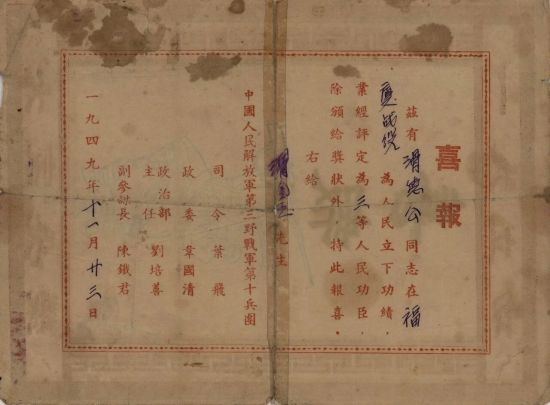 喜報
茲有滑忠公同志在福
廈战役為人民立下功績，
業經評定為三等人民功臣，
除頒給獎狀外，特此報喜。
右給
先生
中國人民解放軍第三野戰軍第十兵團
司令葉飛
政委韋國清
政治部主任劉培善
副參謀長陳鐵君
一九四九年十一月廿三日